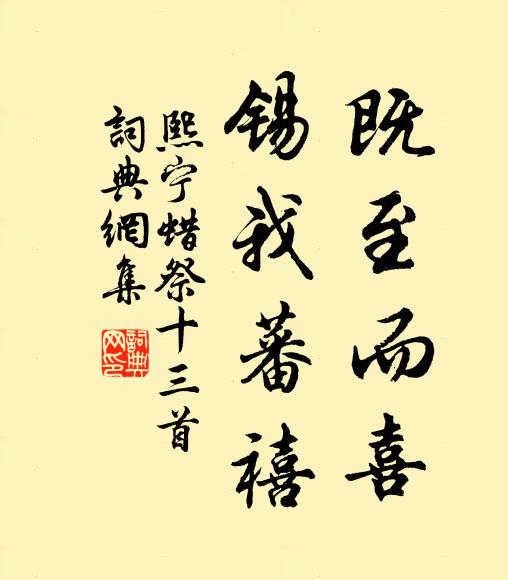 既至而喜
锡我蕃禧
熙宁蜡祭十三首
詞典網集
詞典網印